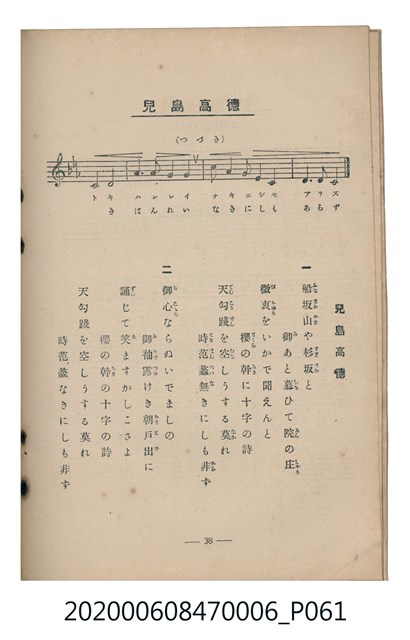 兒島高德
(つゞき)
トキハンレイナキニシモアラズ
きはんれいなきにしもあらず
兒島高德
一 船坂山や杉坂と
御あと慕ひて院の庄
微衷をいかで聞えんと
櫻の幹に十字の詩
天勾踐を空しうする莫れ
時范蠡無きにしも非ず
二 御心ならぬいでましの
御袖露けき朝戶出に
誦じて笑ますかしこさよ
櫻の幹の十字の詩
天勾踐を空しうする莫れ
時范蠡なきにしも非ず
— 38 —
202000608470006_P061